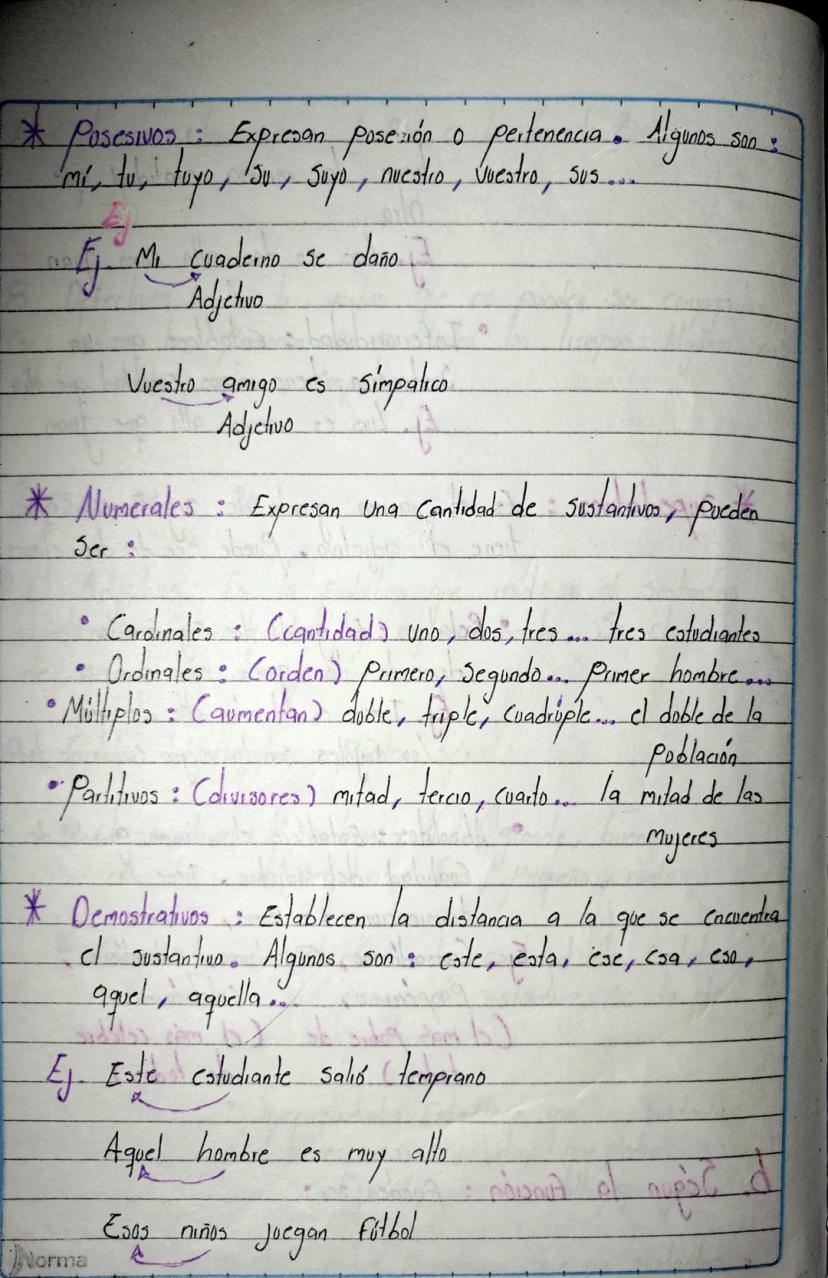 * Posesivos : Expresan posesión o pertenencia. Algunos son :
mí, tu, tuyo, su, suyo, nuestro, vuestro, sus...
Ej
Ej. Mi cuaderno se daño
Adjetivo
Vuestro amigo es simpatico
Adjetivo
* Numerales : Expresan una cantidad de sustantivos, pueden
ser :
• Cardinales : (cantidad) uno, dos, tres... tres estudiantes
• Ordinales : (orden) primero, segundo... primer hombre...
• Múltiplos : (aumentan) doble, triple, cuadrúple... el doble de la
población
• Partitivos : (divisores) mitad, tercio, cuarto... la mitad de las
mujeres
* Demostrativos : Establecen la distancia a la que se encuentra
el sustantivo. Algunos son : este, esta, ese, esa, eso,
aquel, aquella...
Ej. Este estudiante salió temprano
Aquel hombre es muy alto
Esos niños juegan fútbol
Norma